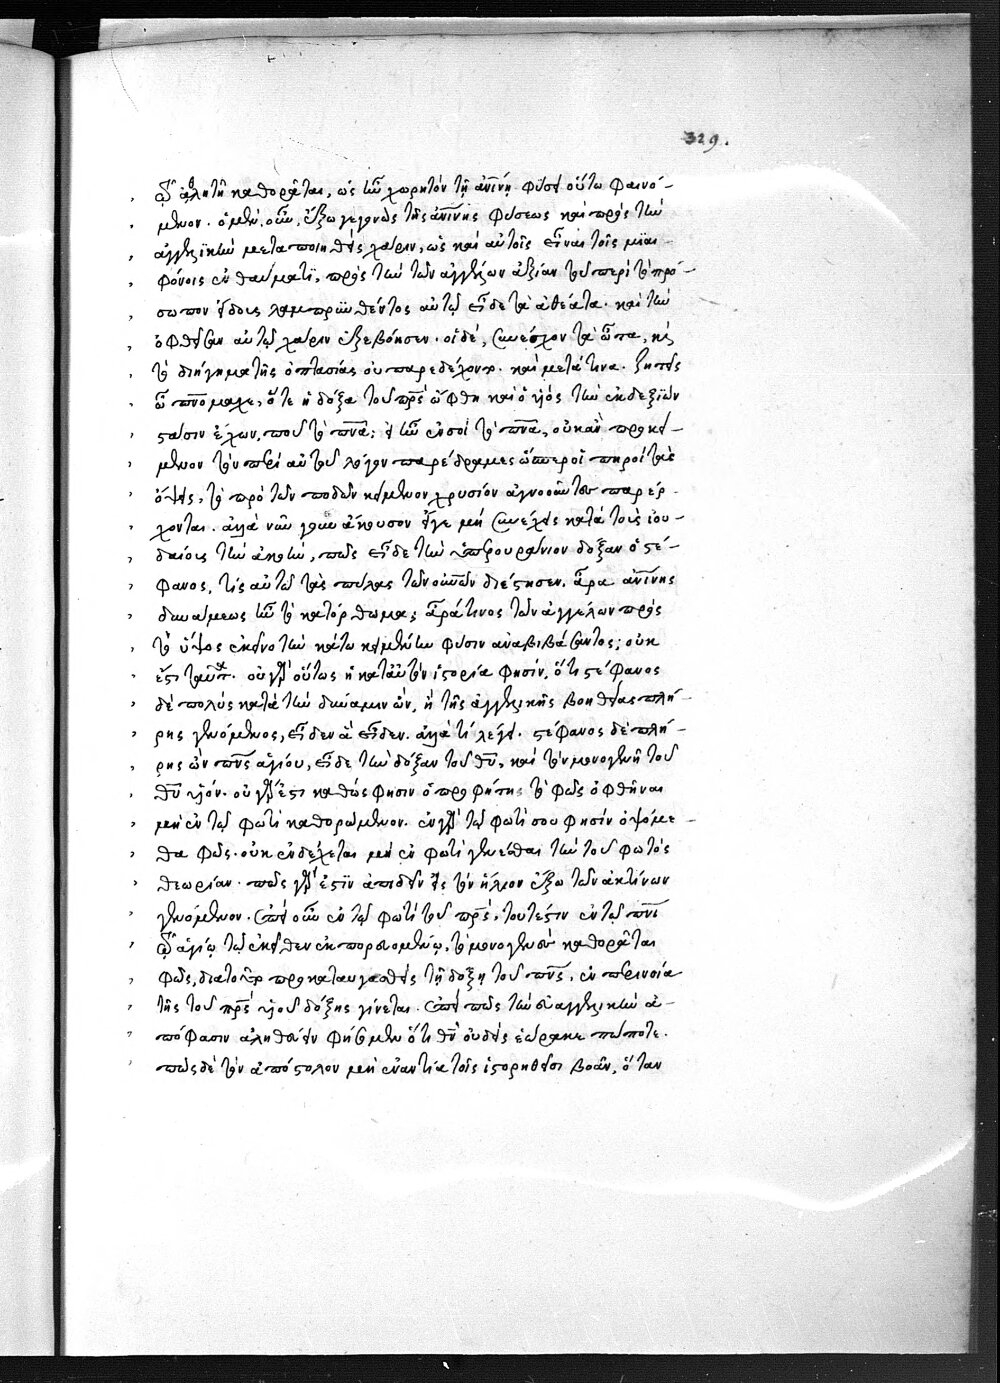 329.
τῷ ἀλήπτῳ καθορᾶται, ὡς ἦν χωρητὸν τῇ ἀνίνῃ φύσει οὕτω φαινό-
μενον. ὁ μὲν οὖν, ἔξω γεγονὼς τῆς ἀνίνης φύσεως καὶ πρὸς τὴν
ἀγγελικὴν μεταποιηθεὶς χάριν, ὡς καὶ αὐτοῖς εἶναι τοῖς μιαι-
φόνοις ἐν θαύματι, πρὸς τὴν τῶν ἀγγέλων ἀξίαν τοῦ περὶ τὸ πρό-
σωπον εἴδους λαμπρυνθέντος αὐτῷ εἶδε τὰ ἀθέατα. καὶ τὴν
ὀφθεῖσαν αὐτῷ χάριν ἐξεβόησεν. οἱ δέ, συνέσχον τὰ ὦτα, καὶ
τὸ διήγημα τῆς ὀπτασίας οὐ παρεδέχοντο. καὶ μετά τινα. ζητεῖς
ὦ πνομάχε, ὅτε ἡ δόξα τοῦ πρς ὤφθη καὶ ὁ υἱὸς τὴν ἐκ δεξιῶν
στάσιν ἔχων, ποῦ τὸ πνα; εἰ ἦν ἐν σοὶ τὸ πνα, οὐκ ἂν προκεί-
μενον τὸν περὶ αὐτοῦ λόγον παρέδραμες ὥσπερ οἱ πηροὶ τὰς
ὄψεις, τὸ πρὸ τῶν ποδῶν κείμενον χρυσίον ἀγνοοῦντες παρέρ-
χονται. ἀλλὰ νῦν γοῦν ἄκουσον εἴγε μὴ συνέχεις κατὰ τοὺς ἰου-
δαίους τὴν ἀκοὴν, πῶς εἶδε τὴν ὑπερουράνιον δόξαν ὁ στέ-
φανος, τίς αὐτῷ τὰς πύλας τῶν οὐνῶν διέστησεν. ἆρα ἀνίνης
δυνάμεως ἦν τὸ κατόρθωμα; ἆρά τινος τῶν ἀγγέλων πρὸς
τὸ ὕψος ἐκεῖνο τὴν κάτω κειμένην φύσιν ἀναβιβάσαντος; οὐκ
ἔστι ταῦτα. οὐ γὰρ οὕτως ἡ κατ᾽ αὐτὸν ἱστορία φησίν, ὅτι στέφανος
δὲ πολὺς κατὰ τὴν δύναμιν ὤν, ἢ τῆς ἀγγελικῆς βοηθείας πλή-
ρης γενόμενος, εἶδεν ἃ εἶδεν. ἀλλὰ τί λέγει. στέφανος δὲ πλή-
ρης ὢν πνς ἁγίου, εἶδε τὴν δόξαν τοῦ θυ, καὶ τὸν μονογενῆ τοῦ
θυ υἱόν. οὐ γὰρ ἔστι καθώς φησιν ὁ προφήτης τὸ φῶς ὀφθῆναι
μὴ ἐν τῷ φωτὶ καθορώμενον. ἐν γὰρ τῷ φωτί σου φησὶν ὀψόμε-
θα φῶς. οὐκ ἐνδέχεται μὴ ἐν φωτὶ γενέσθαι τὴν τοῦ φωτὸς
θεωρίαν. πῶς γάρ ἐστιν ἀπιδεῖν εἰς τὸν ἥλιον ἔξω τῶν ἀκτίνων
γενόμενον. ἐπεὶ οὖν ἐν τῷ φωτὶ τοῦ πρς, τουτέστιν ἐν τῷ πνι
τῷ ἁγίῳ τῷ ἐκεῖθεν ἐκπορευομένῳ, τὸ μονογενὲς καθορᾶται
φῶς, διὰ τοῦτο προκαταυγασθεὶς τῇ δόξῃ τοῦ πνς, ἐν περινοίᾳ
τῆς τοῦ πρς υἱοῦ δόξης γίνεται. ἐπεὶ πῶς τὴν εὐαγγελικὴν ἀ-
πόφασιν ἀληθεύειν φήσομεν ὅτι θν οὐδεὶς ἑώρακε πώποτε.
πῶς δὲ τὸν ἀπόστολον μὴ ἐναντία τοῖς ἱστορηθεῖσι βοᾶν, ὅταν